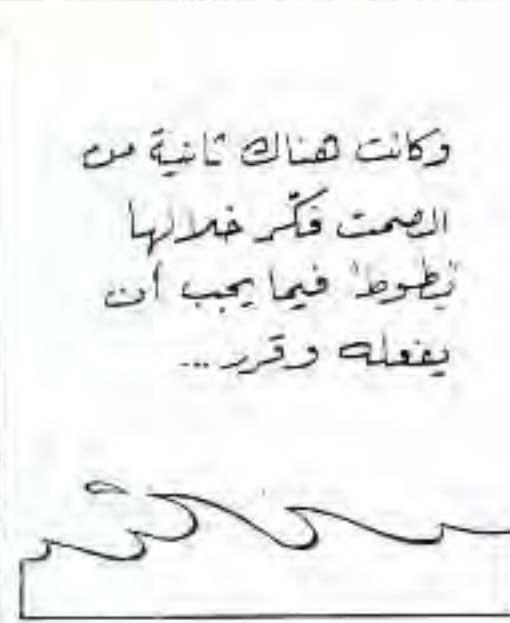 وكانت هناك ثانية من
الصمت فكّر خلالها
بطوط فيما يجب أن
يفعله وقرر ...